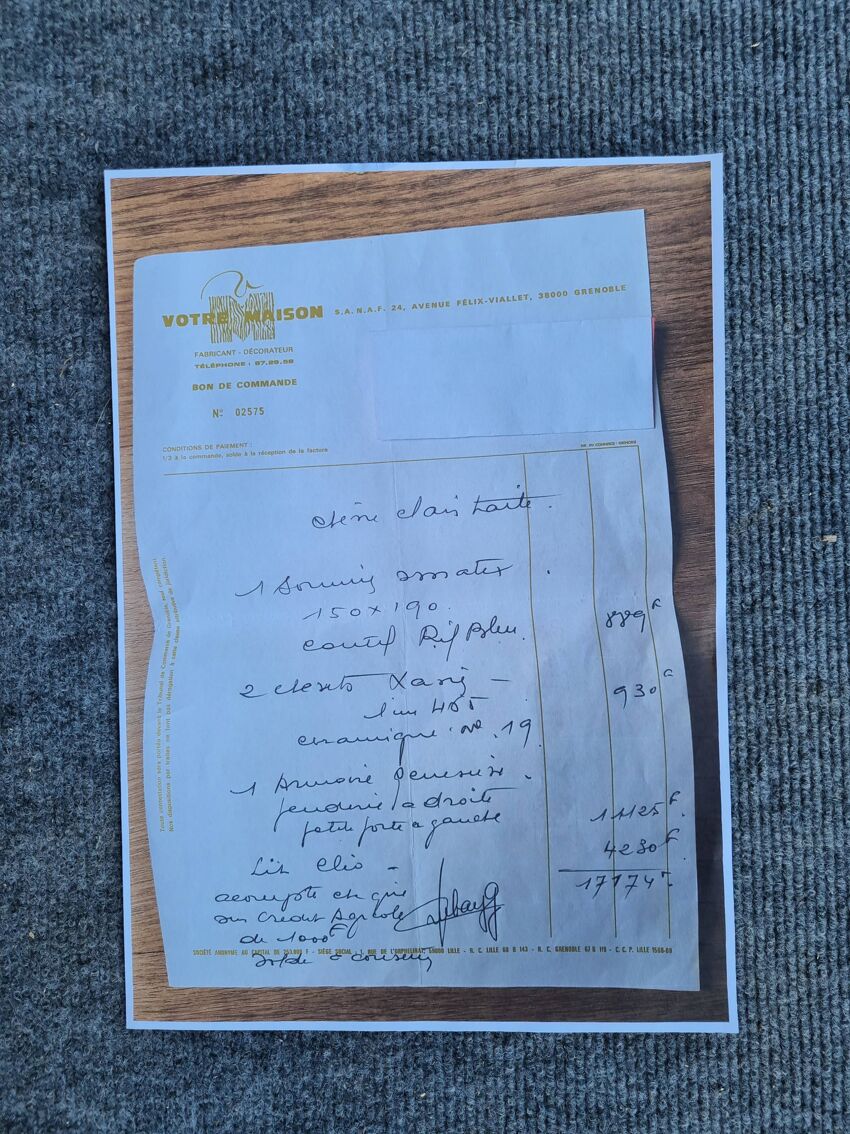 VOTRE MAISON
S.A.N.A.F. 24, AVENUE FÉLIX-VIALLET, 38000 GRENOBLE
FABRICANT - DÉCORATEUR
TÉLÉPHONE : 87.29.58
BON DE COMMANDE
No 02575
CONDITIONS DE PAIEMENT :
1/3 à la commande, solde à la réception de la facture
Toute contestation sera portée devant le Tribunal de Commerce de Grenoble seul compétent
Nos dispositions par traites ne font pas dérogation à cette clause attributive de juridiction
chêne clair
1 Sommier
150 x 190
coutil Bleu
889F
2 chevets
930
l'un 465
ceramique no 19
1 Armoire
penderie a droite
petite porte a gauche
11125F
Lit Clio
4230F
17174
acompte chèque
sur Crédit Agricole
de 1000F
solde
SOCIÉTÉ ANONYME AU CAPITAL DE 253.000 F - SIÈGE SOCIAL - 1, RUE DE L'ORPHELINAT 59000 LILLE - R. C. LILLE 68 B 143 - R. C. GRENOBLE 67 B 119 - C. C. P. LILLE 1568-60